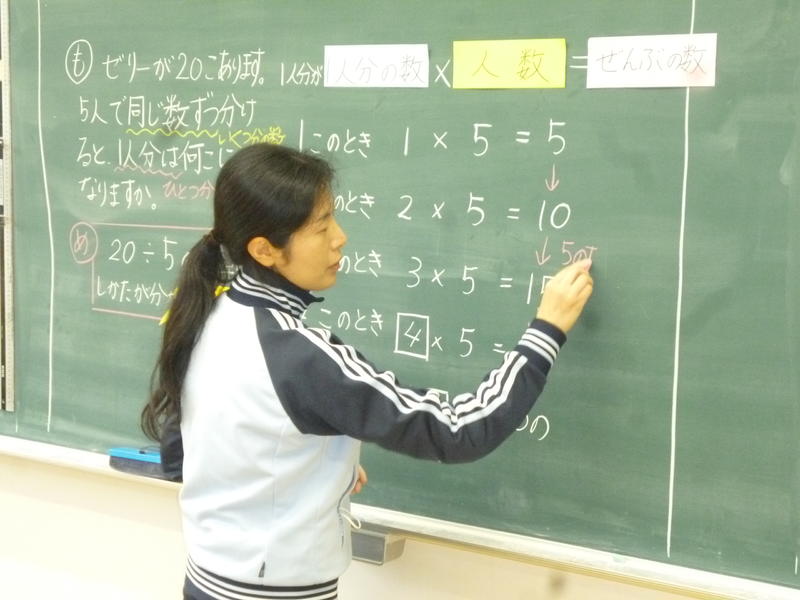 も ゼリーが20こあります。
5人で同じ数ずつ分け
いくつ分の数
ると、1人分は何こに
なりますか。ひとつ分
め 20÷5
しかたが分
1人分が 1人分の数 × 人数 = ぜんぶの数
1このとき 1 × 5 = 5
↓
のとき 2 × 5 = 10
↓ 5の
のとき 3 × 5 = 1
このとき 4 × 5 =
の